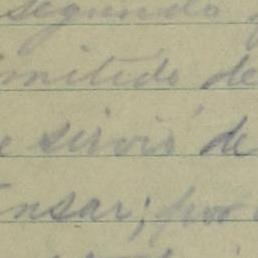 segundo
mitido de
sirvió de
nsar; por